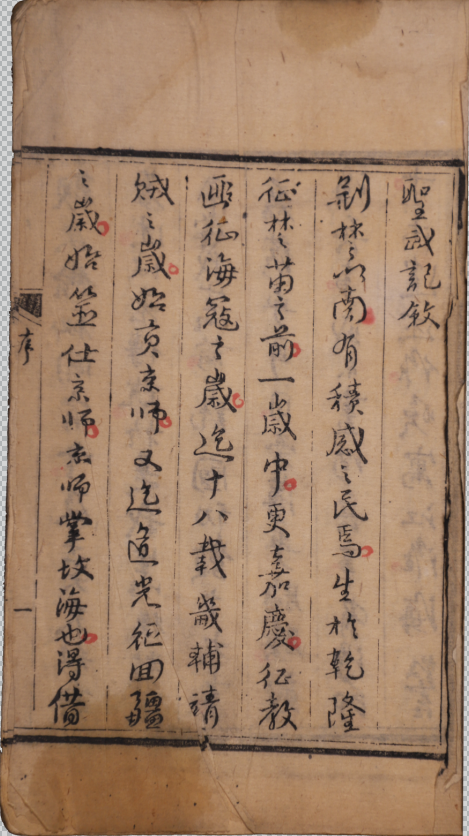 聖武記敘
荆楚以南有積感之民焉生於乾隆
征楚苗之前一歲中更嘉慶征教
匪征海寇之歲迄十八載畿輔靖
賊之歲始貢京师又迄道光征回疆
之歲始筮仕京师京师掌故海也得借
序
一